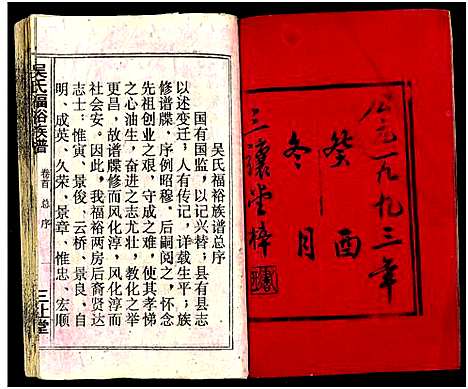 公元一九九三年
癸酉
冬月
三让堂梓
吴氏福裕族谱总序
国有国监，以记兴替；县有县志
以述变迁；人有传记，详载生平；族
修谱牒，序例昭穆。后嗣阅之，怀念
先祖创业之艰，守成之难，使其孝悌
之心油生，奋进之志尤壮，教化之举
更昌，故谱牒修而风化淳，风化淳而
社会安。因此，我福裕两房后裔贤达
志士；惟寅、景俊、云桥、景良、自
明、成英、久荣、景章、惟忠、宏顺
吴氏福裕族谱
卷首
总序
三让堂